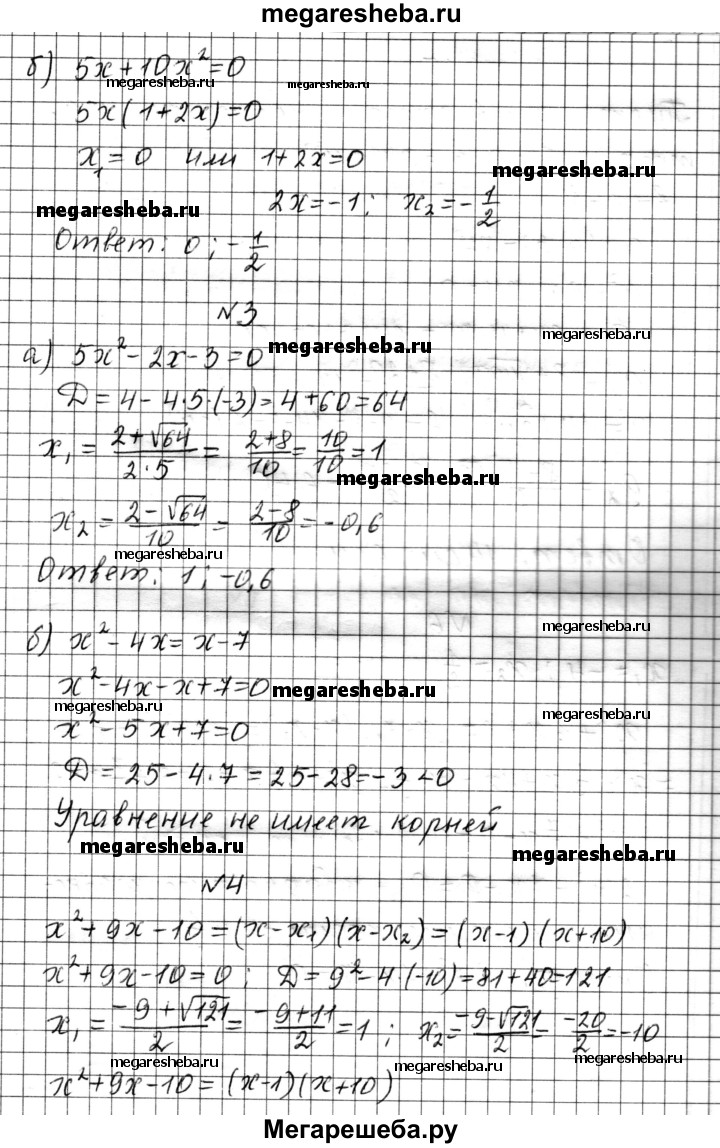 megaresheba.ru
б) 5x + 10x² = 0
megaresheba.ru megaresheba.ru
5x(1 + 2x) = 0
x₁ = 0 или 1 + 2x = 0
megaresheba.ru
megaresheba.ru 2x = -1; x₂ = -1/2
Ответ: 0; -1/2
№3
megaresheba.ru
а) 5x² - 2x - 3 = 0 megaresheba.ru
Д = 4 - 4·5·(-3) = 4 + 60 = 64
x₁ = (2 + √64)/(2·5) = (2+8)/10 = 10/10 = 1
megaresheba.ru
x₂ = (2 - √64)/10 = (2-8)/10 = -0,6
megaresheba.ru
Ответ: 1; -0,6
megaresheba.ru
б) x² - 4x = x - 7
x² - 4x - x + 7 = 0 megaresheba.ru
megaresheba.ru megaresheba.ru
x² - 5x + 7 = 0
Д = 25 - 4·7 = 25 - 28 = -3 < 0
Уравнение не имеет корней
megaresheba.ru megaresheba.ru
№4
x² + 9x - 10 = (x - x₁)(x - x₂) = (x - 1)(x + 10)
x² + 9x - 10 = 0; Д = 9² - 4·(-10) = 81 + 40 = 121
x₁ = (-9 + √121)/2 = (-9+11)/2 = 1; x₂ = (-9 - √121)/2 = -20/2 = -10
megaresheba.ru megaresheba.ru megaresheba.ru
x² + 9x - 10 = (x - 1)(x + 10)
Мегарешеба.ру